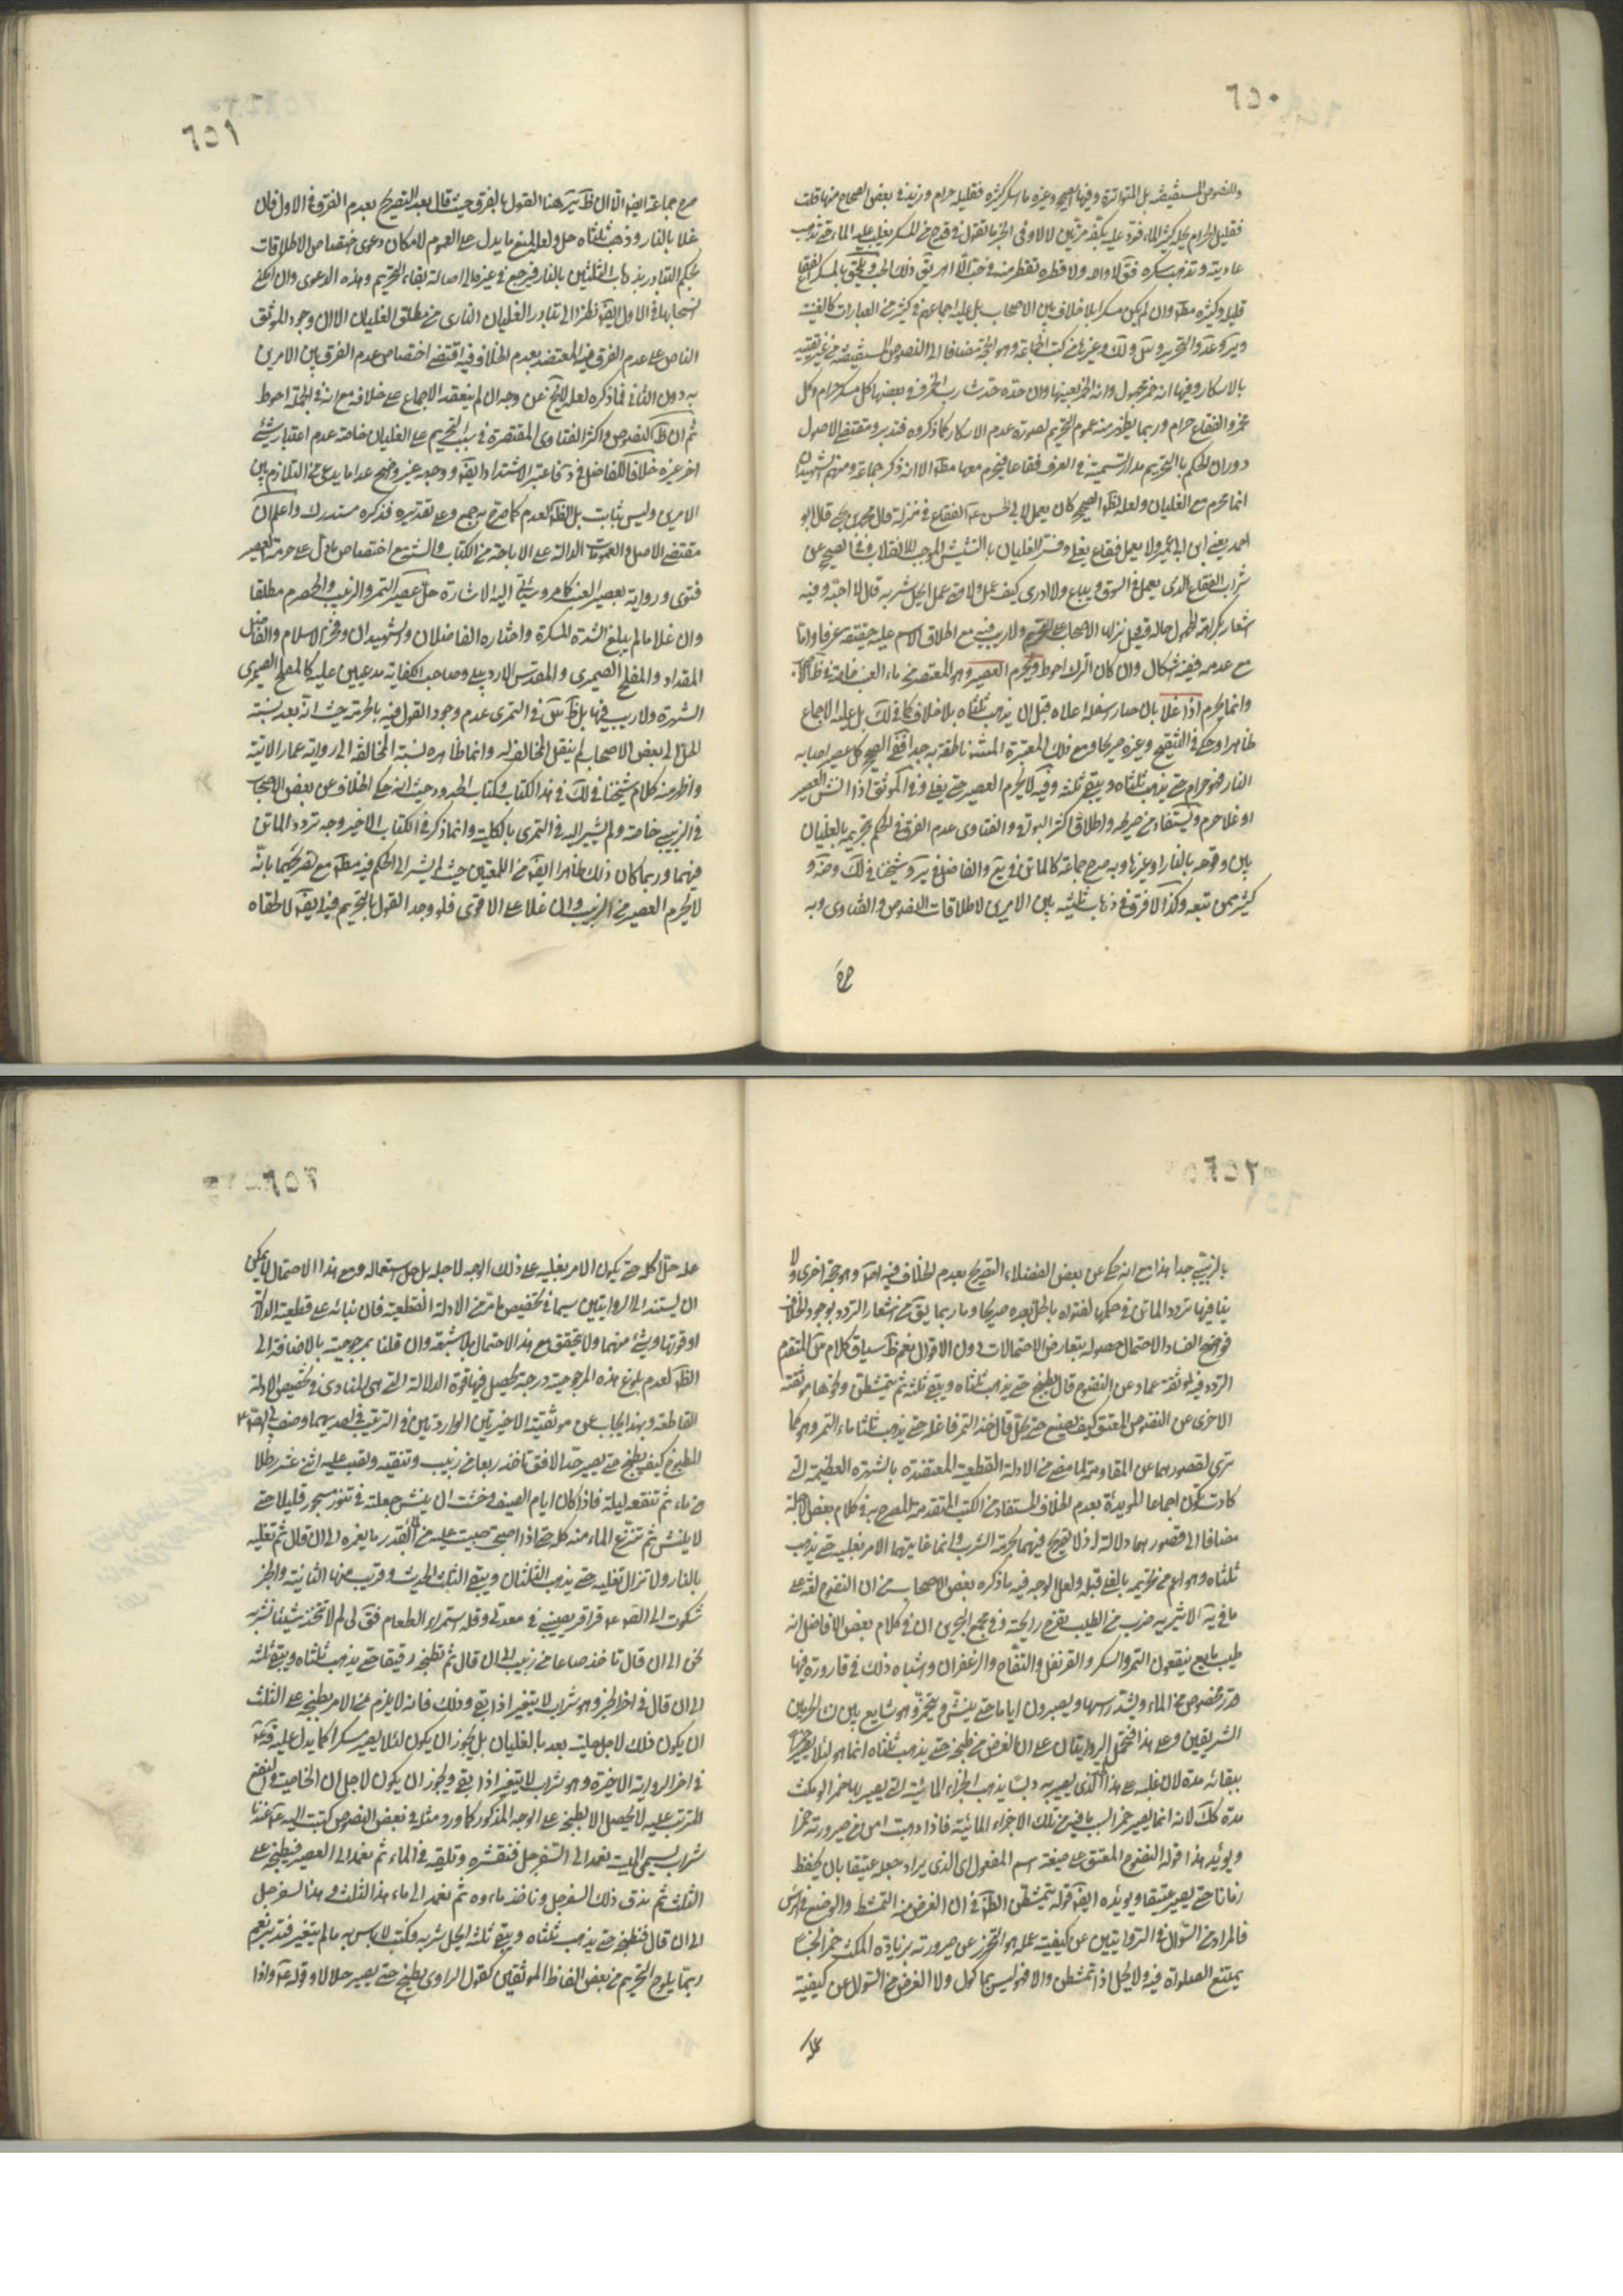 ٦٥٠
وللنصوص المستفيضة بل المتواترة وفيها الصحيح وغيره ما اسكر كثيره فقليله حرام وزيد في بعض الصحاح منها قلت
فقليل الحرام يحله كثير الماء فرد عليه بكفه مرتين لا لا وفي الخبر ما تقول في قدح من المسكر يغلب عليه الماء حتى تذهب
عاديته ويذهب سكره فق لا والله ولا قطرة تقطر منه في حب الا اهريق ذلك الحب ويلحق بالمسكر الفقاع
قليله وكثيره مطلقا وان لم يكن مسكرا بلا خلاف بين الاصحاب بل عليه اجماعهم في كثير من العبارات كالغنية
بالاسكار وفيها انه خمر مجهول وانه الخمر بعينها وان حده حد شارب الخمر وفي بعضها كل مسكر حرام وكل
مخمر والفقاع حرام وربما يظهر منه عموم التحريم لصورة عدم الاسكار كما ذكروه فتدبر ومقتضى الاصول
دوران الحكم بالتحريم مدار التسمية في العرف فقاعا فيحرم معها مطلقا الا انه ذكر جماعة ومنهم الشهيدان
انما يحرم مع الغليان ولعله لظ الصحيح كان يعمل لابي الحسن ع الفقاع في منزله قال محمد بن يحيى قال ابو
احمد يعني ابن ابي عمير ولا يعمل فقاع يغلي وفسر الغليان بالنشيش الموجب للانقلاب وفي الصحيح عن
شراب الفقاع الذي يعمل في السوق ويباع ولا ادري كيف عمل ولا متى عمل ايحل شربه قال لا احبه وفيه
اشعار بكراهة المجهول حاله
مع عدمه ففيه اشكال وان كان الترك احوط ويحرم العصير وهو المعتصر من ماء العنب خاصة
وانما يحرم اذا غلا بان صار اسفله اعلاه قبل ان يذهب ثلثاه بلا خلاف كما في لك بل عليه الاجماع
ظاهرا وحكي في التنقيح وغيره صريحا ومع ذلك المعتبرة المستفيضة ناطقة به جدا ففي الصحيح كل عصير اصابه
النار فهو حرام حتى يذهب ثلثاه ويبقى ثلثه وفيه لا يحرم العصير حتى يغلي وفي الموثق اذا نش العصير
او غلا حرم ويستفاد من صريحه واطلاق اكثر البواقي والفتاوى عدم الفرق في الحكم بتحريمه بالغليان
بين وقوعه بالنار او غيرها وبه صرح جماعة كالماتن في يع والفاضل في ير وشيخنا في لك وضه و
كثير ممن تبعه وكذا لا فرق في ذهاب ثلثيه بين الامرين لاطلاقات النصوص والفتاوى وبه
صرح
٦٥١
صرح جماعة ايضا الا ان ظ ير هنا القول بالفرق حيث قال بعد التصريح بعدم الفرق في الاول فان
غلا بالنار وذهب ثلثاه حل ولعله لمنع ما يدل على العموم لامكان دعوى اختصاص الاطلاقات
بحكم التبادر بذهاب الثلثين بالنار فيرجع في غيرها الى اصالة بقاء التحريم وهذه الدعوى وان امكن
انسحابها في الاول ايضا نظرا الى تبادر الغليان الناري من مطلق الغليان الا ان وجود الموثق
الناص على عدم الفرق فيه المعتضد بعدم الخلاف فيه اقتضى اختصاص عدم الفرق بين الامرين
به دون الثاني فما ذكره لعله لا يخ عن وجه ان لم ينعقد الاجماع على خلافه مع انه في الجملة احوط
ثم ان ظ النصوص واكثر الفتاوى المقتصرة في سبب التحريم على الغليان خاصة عدم اعتبار شيء
اخر غيره خلافا للفاضل في د فاعتبر الاشتداد ايضا ووجهه غير واضح عدا ما يدعى من التلازم بين
الامرين وليس بثابت بل الظاهر العدم كما صرح به جمع وعلى تقديره فذكره مستدرك واعلم ان
مقتضى الاصل والعمومات الدالة على الاباحة من الكتاب والسنة مع اختصاص ما دل على حرمة العصير
فتوى ورواية بعصير العنب كما مر وسيأتي اليه الاشارة حل عصير التمر والزبيب والحصرم مطلقا
وان غلا ما لم يبلغ الشدة المسكرة واختاره الفاضلان والشهيدان وفخر الاسلام والفاضل
المقداد والمفلح الصيمري والمقدس الاردبيلي وصاحب الكفاية مدعيين عليه كالمفلح الصيمري
الشهرة ولا ريب فيها بل ظ س في التمري عدم وجود القول فيه بالحرمة حيث انه بعد نسبته
الحل الى بعض الاصحاب لم ينقل المخالف له وانما ظاهره نسبة المخالفة الى رواية عمار الاتية
واظهر منه كلام شيخنا في لك في هذا الكتاب وكتاب الحدود حيث انه حكى الخلاف عن بعض الاصحاب
في الزبيب خاصة ولم يشير اليه في التمري بالكلية وانما ذكر في الكتاب الاخير وجه تردد الماتن
فيهما وربما كان ذلك ظاهرا ايضا من اللمعتين حيث لم يشر الى الحكم فيه مطلقا مع تصريحهما بانه
لا يحرم العصير من الزبيب وان غلا على الاقوى فلو وجد القول بالتحريم فيه ايضا لالحقاه
٦٥٢
بالزبيب جدا هذا مع انه حكي عن بعض الفضلاء التصريح بعدم الخلاف فيه اصلا وهو حجة اخرى ولا
ينافيها تردد الماتن في حكمها لفتواه بالحل بعده صريحا وما ربما يق من اشعار التردد بوجود الخلاف
فواضح الفساد لاحتمال حصوله بتعارض الاحتمالات دون الاقوال نعم ظ سياق كلام س المتقدم
التردد فيه لموثقة عمار عن النضوح قال يطبخ حتى يذهب ثلثاه ويبقى ثلثه ثم يتمشطن ونحوها موثقته
الاخرى عن النضوح المعتق كيف يصنع حتى يحل قال خذ التمر فاغله حتى يذهب ثلثا ماء التمر وهو كما
ترى لقصورهما عن المقاومة لما مضى من الادلة القطعية المعتضدة بالشهرة العظيمة التي
كادت تكون اجماعا المؤيدة بعدم الخلاف المستفاد من الكتب المتقدمة المصرح به في كلام بعض الاجلة
مضافا الى قصورهما دلالة اذ لا تصريح فيهما بحرمة الشرب وانما غايتهما الامر بغليه حتى يذهب
ثلثاه وهو اعم من تحريمه بالغلي قبله ولعل الوجه فيه ما ذكره بعض الاصحاب من ان النضوح لغة على
ما في يه الاثيرية ضرب من الطيب تفوح رايحته وفي مجمع البحرين ان في كلام بعض الافاضل انه
طيب مايع ينقعون التمر والسكر والقرنفل والتفاح والزعفران واشباه ذلك في قارورة فيها
قدر مخصوص من الماء ويشد رأسها ويصبرون اياما حتى ينش ويتخمر وهو شايع بين نساء الحرمين
الشريفين وعلى هذا فيحتمل الروايتان على ان الغرض من طبخه حتى يذهب ثلثاه انما هو لئلا يصير خمرا
ببقائه مدة لان غليه على هذا
مدة كك لانه انما يصير خمرا بسبب ما فيه من تلك الاجزاء المائية فاذا ذهبت امن من صيرورته خمرا
ويؤيد هذا قوله النضوح المعتق على صيغة اسم المفعول اي الذي يراد جعله عتيقا بان يحفظ
زمانا حتى يصير عتيقا ويؤيده ايضا قوله يتمشطن الظاهر في ان الغرض منه التمشط والوضع في الرأس
فالمراد من السؤال في الروايتين عن كيفية عمله هو التحرز عن صيرورته بزيادة المكث خمرا نجسا
يمتنع الصلوة فيه ولا يحل اذا تمشطن والا فهو ليس بمأكول ولا الغرض من السؤال عن كيفية
عمله
عمله حل اكله حتى يكون الامر بغليه على ذلك الوجه لاجله بل حل استعماله ومع هذا الاحتمال لا يمكن
ان يستند الى الروايتين سيما في تخصيص ما مر من الادلة القطعية فان بنائه على قطعية الدلالة
او قوتها وشيء منهما ولا يتحقق مع هذا الاحتمال بلا شبهة وان قلنا بمرجوحيته بالاضافة الى
الظاهر لعدم بلوغ هذه المرجوحية درجة يحصل فيها قوة الدلالة التي هي المناط في تخصيص الادلة
القاطعة وبهذا يجاب عن موثقيه الاخيرتين الواردتين في الزبيب في احديهما وصف لي الصادق ع
المطبوخ كيف يطبخ حتى يصير حلالا فق تاخذ ربعا من زبيب وتنقيه وتصب عليه اثنى عشر رطلا
من ماء ثم تنقعه ليلة فاذا كان ايام الصيف وخشيت ان ينش جعلته في تنور مسجور قليلا حتى
لا ينش ثم تنزع الماء منه كله حتى اذا اصبحت صببت عليه من الماء بقدر ما يغمره الى ان قال ثم تغليه
بالنار ولا تزال تغليه حتى يذهب الثلثان ويبقى الثلث الحديث وقريب منها الثانية والخبر
شكوت الى الصادق ع قراقر يصيبني في معدتي وقلة استمراء الطعام فق لي لم لا تتخذ شيئا نشربه
نحن الى ان قال تاخذ صاعا من زبيب الى ان قال ثم تطبخه رقيقا حتى يذهب ثلثاه ويبقى ثلثه
الى ان قال في اخر الخبر وهو شراب لا يتغير اذا بقي وذلك فانه لا يلزم من الامر بطبخه على الثلث
ان يكون ذلك لاجل حليته بعد بالغليان بل يجوز ان يكون لئلا يصير مسكرا كما يدل عليه قوله ع
في اخر الرواية الاخيرة وهو شراب لا يتغير اذا بقي ويجوز ان يكون لاجل ان الخاصية والنفع
المترتب عليه لا يحصل الا بطبخه على الوجه المذكور كما ورد مثله في بعض النصوص كتبت اليه ع عندنا
شراب يسمى الميبه نعمد الى السفرجل فنقشره وتلقيه في الماء ثم نعمد الى العصير فنطبخه على
الثلث ثم ندق ذلك السفرجل وناخذ ماءه ثم نعمد الى ماء هذا الثلث وهذا السفرجل
الى ان قال فنطبخه حتى يذهب ثلثاه ويبقى ثلثه ايحل شربه فكتب لا باس به ما لم يتغير فتدبر نعم
ربما يلوح التحريم من بعض الفاظ الموثقين كقول الراوي يطبخ حتى يصير حلالا وقوله ع واذا